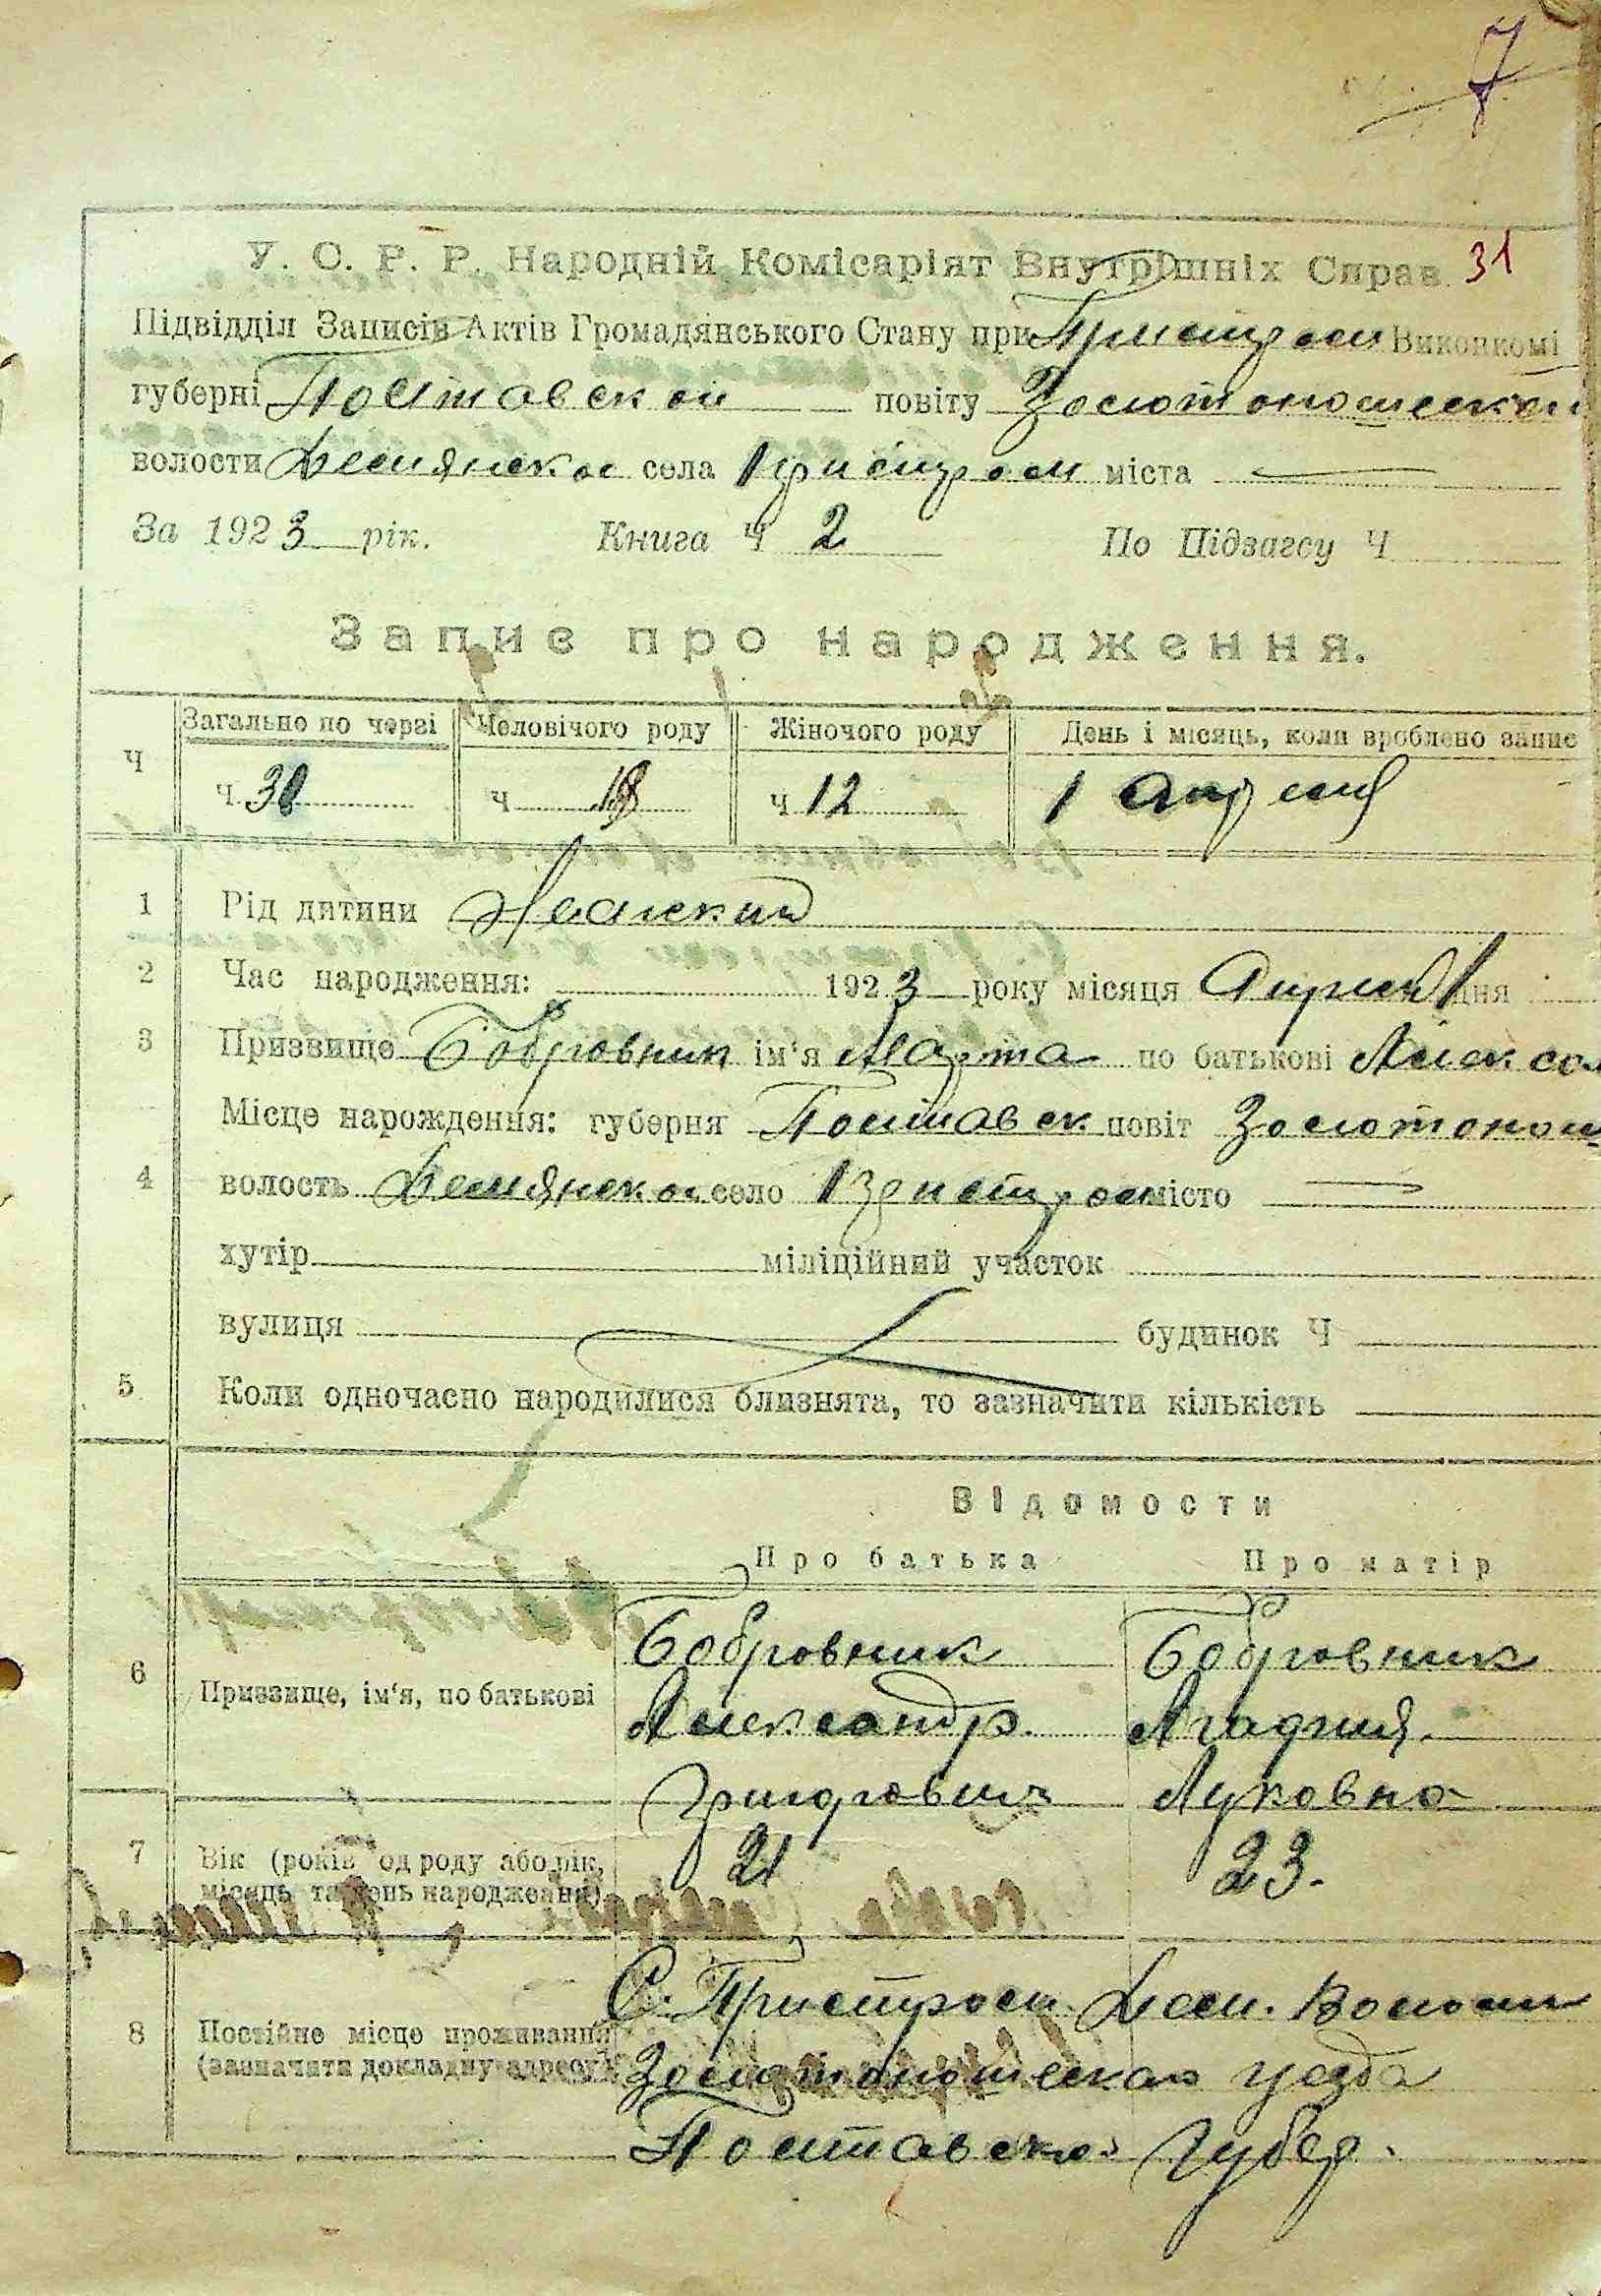 7
У. С. Р. Р. Народній Комісаріят Внутрішніх Справ 31
Підвідділ Записів Актів Громадянського Стану при Пристром Виконкомі
губерні Полтавской повіту Золотоношеской
волости Демянской села Пристром міста
За 1923 рік. Книга Ч 2 По Підзагсу Ч
Запис про народження.
Загально по черзі Чоловічого роду Жіночого роду День і місяць, коли зроблено запис
Ч ч. ч ч 12 1 Апреля
1 Рід дитини Женский
2 Час народження: 1923 року місяця Апреля 1 дня
3 Призвище Бобровник ім'я Марта по батькові Алексан
Місце народження: губерня Полтавск повіт Золотонош
4 волость Демянской село місто
хутір міліційний участок
вулиця будинок Ч
5 Коли одночасно народилися близнята, то зазначити кількість
Відомости
Про батька Про матір
Бобровник Бобровник
6 Призвище, ім'я, по батькові Александр.
Григорович Луковна
7 Вік (років од роду або рік, місяць та день народження) 21 23.
С. Пристром Дем. Волости
8 Постійне місце проживання (зазначати докладну адресу) Золотоношеского уезда
Полтавской Губер.